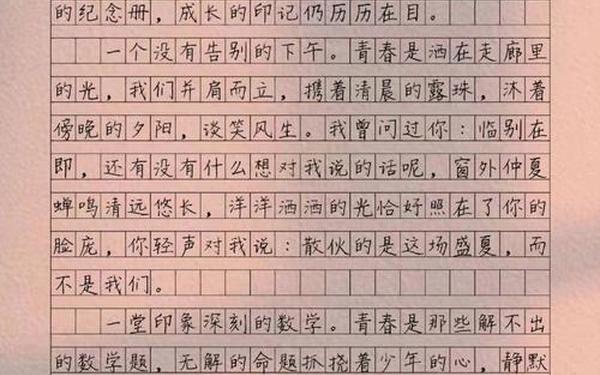 的纪念册，成长的印记仍历历在目。
一个没有告别的下午。青春是洒在走廊里
的光，我们并肩而立，携着清晨的露珠，沐着
傍晚的夕阳，谈笑风生。我曾问过你：临别在
即，还有没有什么想对我说的话呢，窗外仲夏
蝉鸣清远悠长，洋洋洒洒的光恰好照在了你的
脸庞，你轻声对我说：散伙的是这场盛夏，而
不是我们。
一堂印象深刻的数学。青春是那些解不出
的数学题，无解的命题抓挠着少年的心，静默